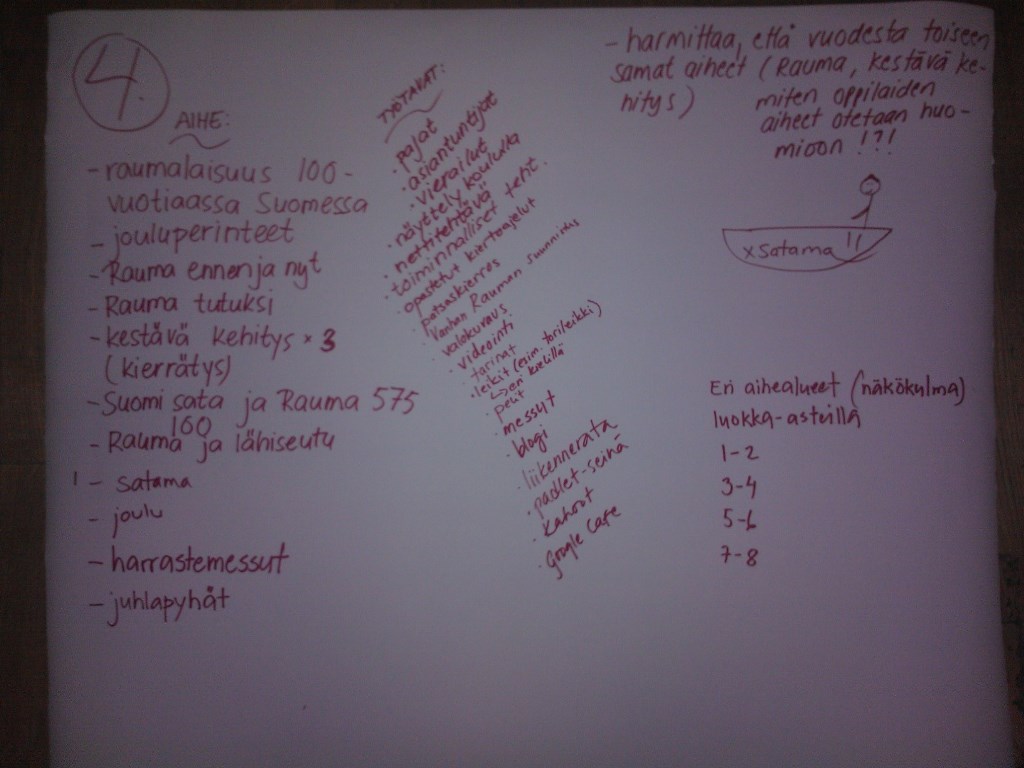 4.
AIHE:
- raumalaisuus 100-
vuotiaassa Suomessa
- jouluperinteet
- Rauma ennen ja nyt
- Rauma tutuksi
- kestävä kehitys x 3
(kierrätys)
- Suomi sata ja Rauma 575
100
- Rauma ja lähiseutu
1 - satama
- joulu
- harrastemessut
- juhlapyhät
TYÖTAVAT:
• pajat
• asiantuntijat
• vierailut
• näyttely koululla
• nettitehtävä
• toiminnalliset teht.
• opastetut kiertoajelut
• patsaskierros
• Vanhan Rauman suunnistus
• valokuvaus
• videointi
• tarinat
• leikit (esim. torileikki)
↳ eri kielillä
• pelit
• messut
• blogi
• liikennerata
• padlet-seinä
• kahoot
• Google Cafe
- harmittaa, että vuodesta toiseen
samat aiheet (Rauma, kestävä ke-
hitys)
miten oppilaiden
aiheet otetaan huo-
mioon !?!
x Satama !!
Eri aihealueet (näkökulma)
luokka-asteilla
1-2
3-4
5-6
7-8